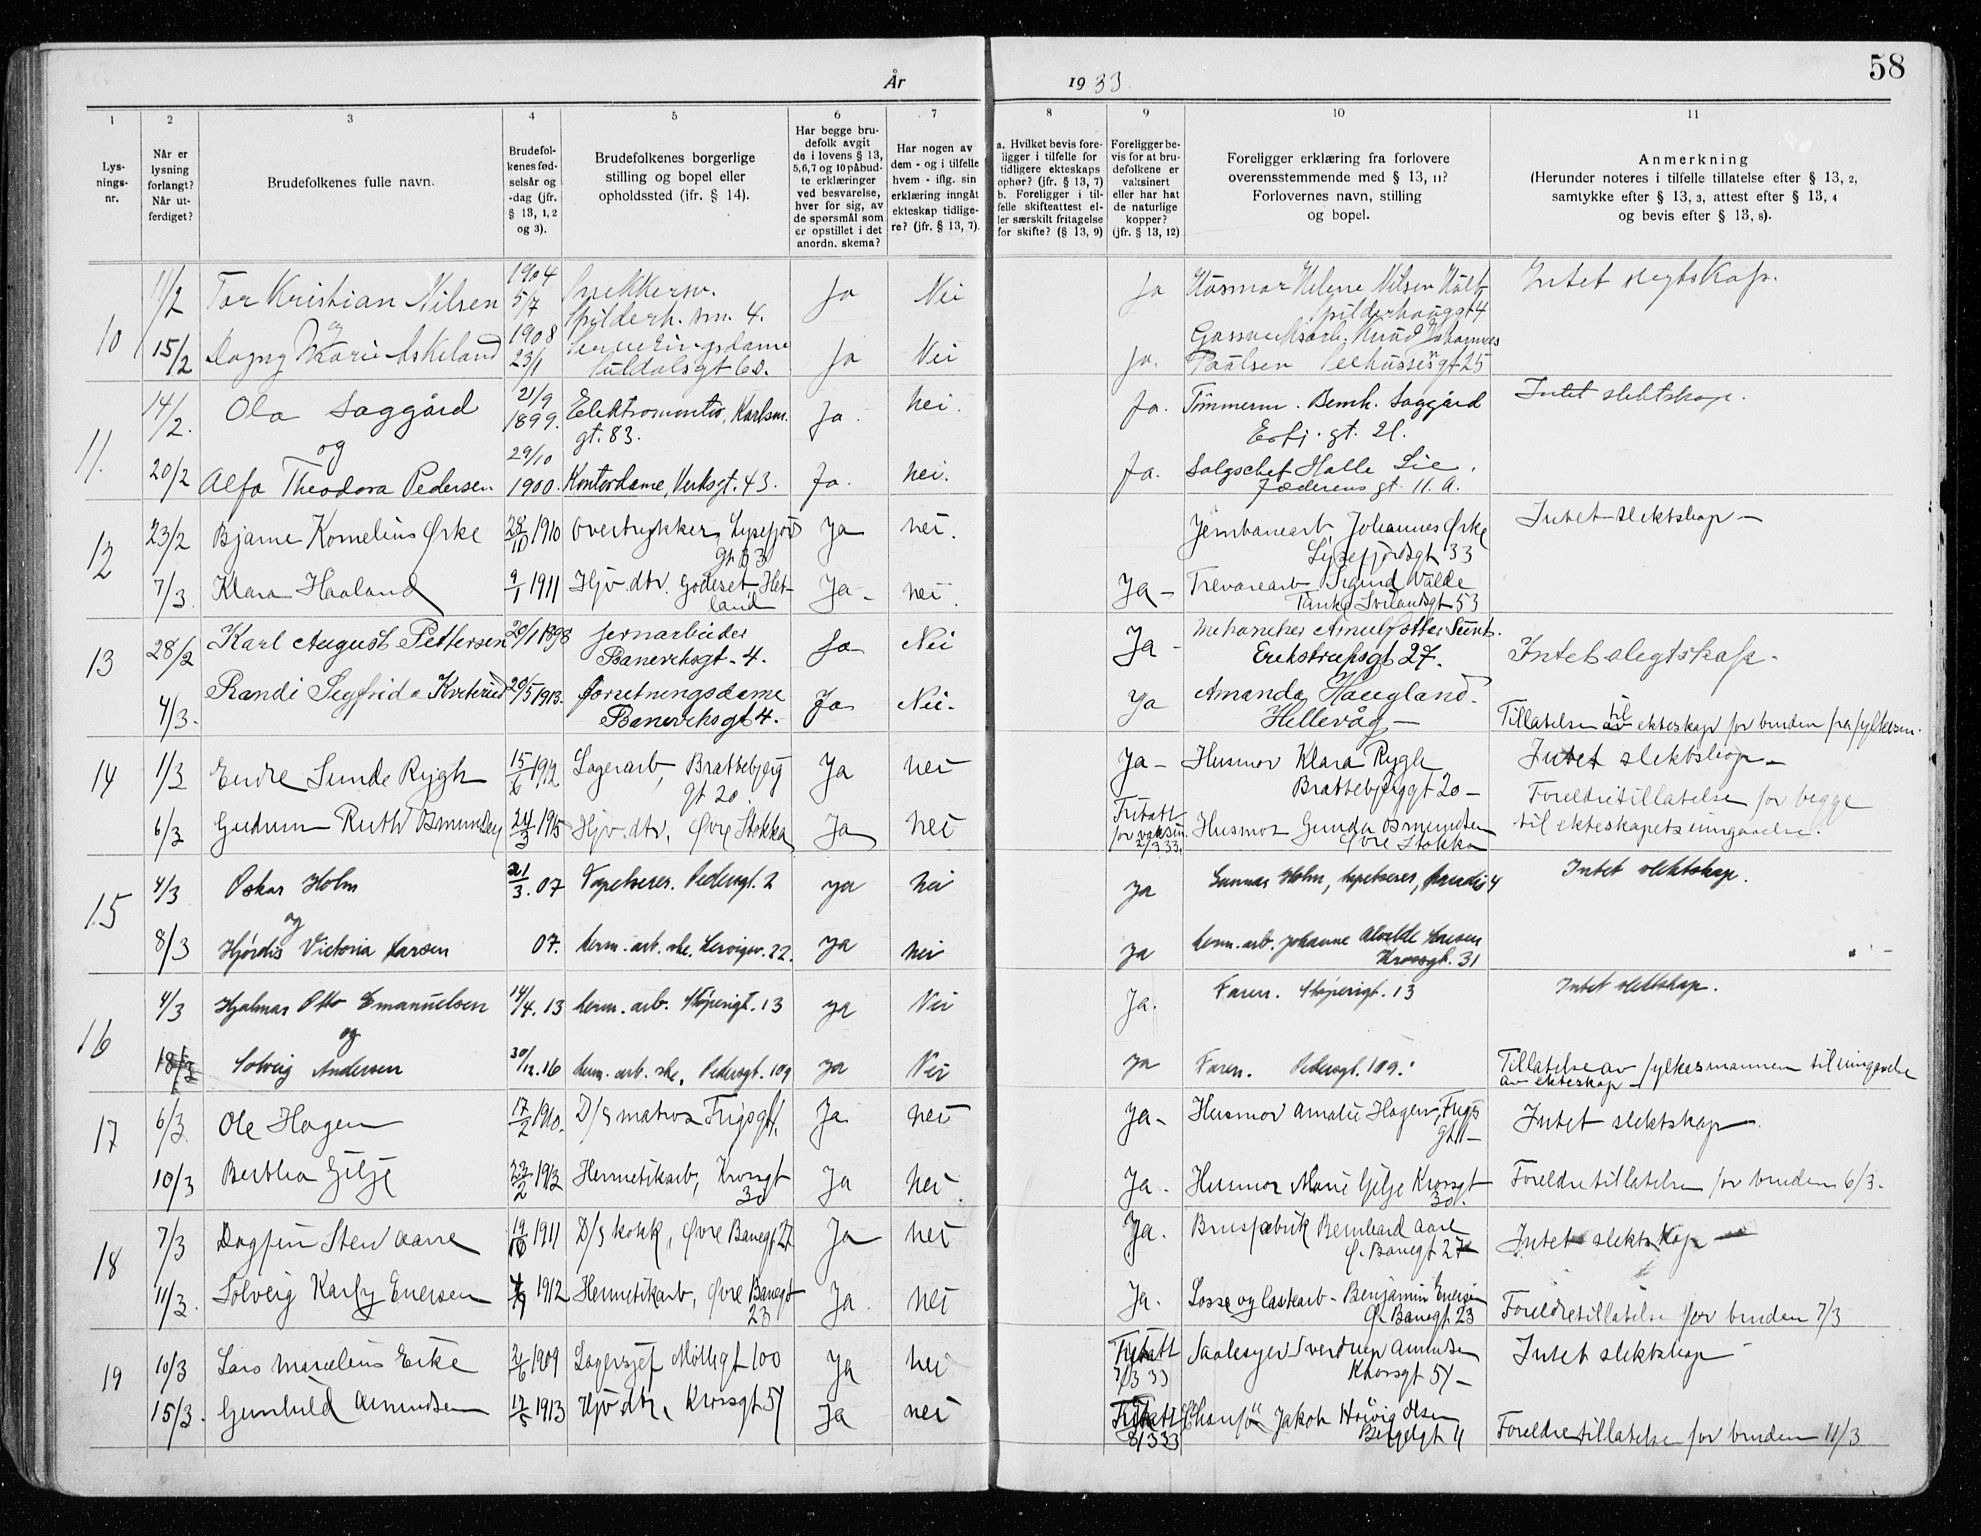 58
År 1933.
1 2 3 4 5 6 7 8 9 10 11
Lysnings-nr.
Når er lysning forlangt? Når utferdiget?
Brudefolkenes fulle navn.
Brudefolkenes fødselsår og -dag (jfr. § 13, 1, 2 og 3).
Brudefolkenes borgerlige stilling og bopel eller opholdssted (jfr. § 14).
Har begge brudefolk avgit de i lovens § 13, 5,6,7 og 10 påbudte erklæringer ved besvarelse, hver for sig, av de spørsmål som er opstillet i det anordn. skema?
Har nogen av dem - og i tilfelle hvem - iflg. sin erklæring inngått ekteskap tidligere? (jfr. § 13, 7).
a. Hvilket bevis foreligger i tilfelle for tidligere ekteskaps ophør? (jfr. § 13, 7) b. Foreligger i tilfelle skifteattest eller særskilt fritagelse for skifte? (§ 13, 9)
Foreligger bevis for at brudefolkene er vaksinert eller har hat de naturlige kopper? (jfr. § 13, 12)
Foreligger erklæring fra forlovere overensstemmende med § 13, 11? Forlovernes navn, stilling og bopel.
Anmerkning (Herunder noteres i tilfelle tillatelse efter § 13, 2, samtykke efter § 13, 3, attest efter § 13, 4 og bevis efter § 13, 8).
10 11/2 Tor Kristian Nilsen 1904 5/7 Snekkersv. Spilderh. 4. Ja Nei Ja Husmor Helene Nilsen Spilderhauggt 4 Intet slegtskap.
15/2 Dagny Marie Askeland 1908 23/1 Suldalsgt 6d. Ja Nei Ja. Knud Johannes Paulsen Seehussensgt 25
11. 14/2. Ola Saggård 21/9 1899. Elektromontør, Karlsm. gt. 83. Ja. nei. Ja. Tømmerm. Bernh. Saggård Erfj. gt. 21. Intet slektskap.
og
20/2 Alfa Theodora Pedersen. 29/10 1900. Kontordame, Verksgt. 43. Ja. nei. Ja. Salgschef Halle Lie. Jæderens gt. 11. A.
12 23/2 Bjarne Kornelius Ørke 28/10 1910 Overtrykker, Lysefjords gt 33 Ja nei. Jernbanearb. Johannes Ørke Lysefjordsgt 33 Intet slektskap —
7/3 Klara Haaland 9/1 1911 Hjv. dtr. Godeset, Hetland Ja - nei. Ja - Trevarearb Sigurd Valde Tanke Svilandsgt 53
13 28/2 Karl August Pettersen 20/1 1898 Jernarbeider Baneveksgt. 4. Ja Nei Ja - Mekaniker Erikstrupsgt 27. Intet slegtskap.
4/3. Randi Sigfrida 20/5 1913. Forretningsdame Baneveksgt 4. Ja Nei. Ja Amanda Haugland. Hellevåg — Tillatelse til ekteskap for bruden fra fylkesm.
14 1/3 Endre Sunde Rygh 15/6 1912 Lagerarb, Brattebjerg gt 20 Ja nei Ja - Husmor Klara Rygh Brattebjerggt 20 - Intet slektskap - Foreldretillatelse for begge til ekteskapets inngaaelse.
6/3 Gudrun Ruth Osmundsen 24/3 1915 Hjv. dtr, Øvre Stokka Ja nei Fritatt for vaksin. 2/3 33. Husmor Gunda Osmundsen Øvre Stokka
15 4/3 Oskar Holm 21/3. 07 Tapetserer. Pedersgt. 2 ja nei ja Gunnar Holm, tapetserer, Intet slektskap.
og
8/3 Hjørdis Victoria Larsen 07. herm. arb. ske. Lervigsv. 22. ja nei ja herm. arb. Johanne Alvilde Larsen Krossgt. 31
16 4/3 Hjalmar Otto Emanuelsen 14/4. 13 herm. arb. Støperigt. 13 ja Nei Ja. Faren. Støperigt. 13 Intet slektskap.
og
18/3 Solveig Andersen 30/12. 16 herm. arb. ske. Pedersgt. 109 ja Nei ja Faren. Pedersgt. 109. Tillatelse av fylkesmannen til inngaaelse av ekteskap -
17 6/3 Ole Hagen 17/2 1910. D/S matros Frigsgt 1, Ja nei Ja - Husmor Amalie Hagen, Frigsgt 1 - Intet slektskap.
10/3 Bertha Gilje 23/2 1913 Hermetikarb, Krosgt 30 Ja nei. Ja - Husmor Marie Gilje Krosgt 30. Foreldretillatelse for bruden 6/3.
18 7/3 Dagfin Sten Aare 19/10 1911 D/S kokk, Øvre Banegt. 27 Ja nei Ja. Brusfabrik Bernhard Aare Ø. Banegt 27 Intet slektskap —
11/3. Solveig Karly Enersen 1912 Hermetikarb, Øvre Banegt 23 Ja. nei Ja. Losse og lastearb - Benjamin Enersen Ø. Banegt 23 Foreldretillatelse for bruden 7/3
19 10/3 Lars Marselius Erke 2/6 1909 Lagersjef Møllegt 100 Ja nei Fritatt 7/3 33 Sverdrup Amundsen Krosgt 51 - Intet slektskap -
15/3. Gunhild Amundsen 17/5 1913 Hjv. dtr, Krosgt 51 Ja nei Fritatt 8/3 33 Chaufør Jakob Olsen Bergelgt 11 Foreldretillatelse for bruden 11/3